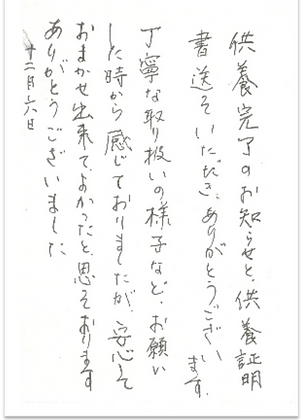 供養完了のお知らせと、供養証明
書送っていただき、ありがとうござい
ます。
丁寧な取り扱いの様子など、お願い
した時から感じておりましたが、安心して
おまかせ出来て、よかったと思っております
ありがとうございました
十二月六日